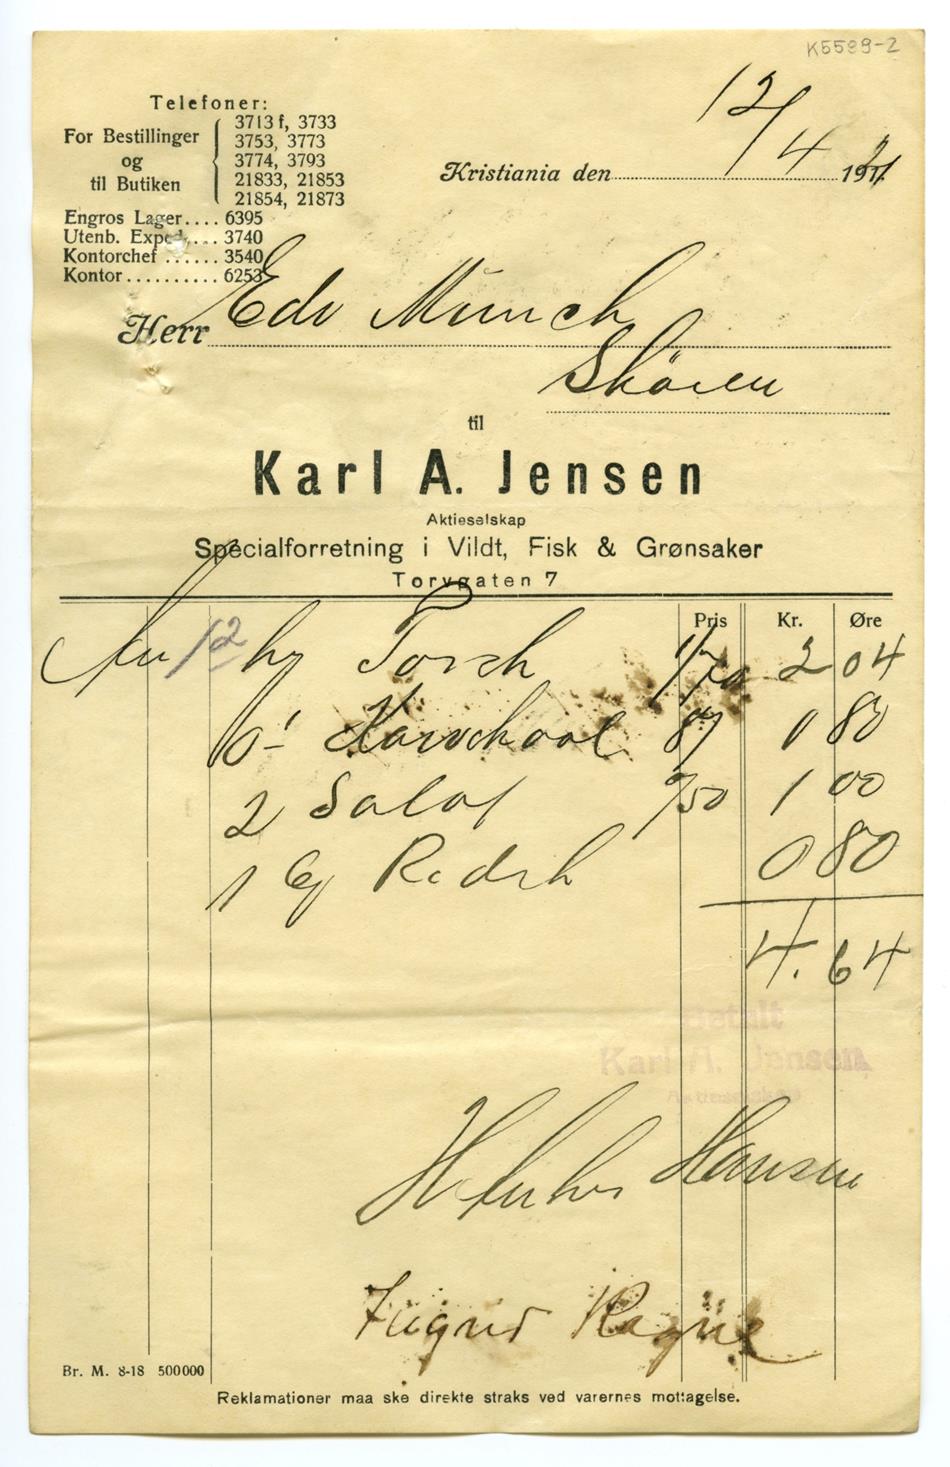 K5589-2
Telefoner:
For Bestillinger og til Butiken
3713 f, 3733
3753, 3773
3774, 3793
21833, 21853
21854, 21873
Engros Lager.... 6395
Utenb. Exped.... 3740
Kontorchef ...... 3540
Kontor.......... 6253
Kristiania den 12/4 1921
Herr Edv Munch
Sköien
til
Karl A. Jensen
Aktieselskap
Specialforretning i Vildt, Fisk & Grønsaker
Torvgaten 7
Pris Kr. Øre
12 hg Torsk 1/70 2 04
2 Salat 1 00
1 Redik 0 80
4.64
Betalt
Karl A. Jensen
Aktieselskap
Hansen
Br. M. 8-18 500000
Reklamationer maa ske direkte straks ved varernes mottagelse.